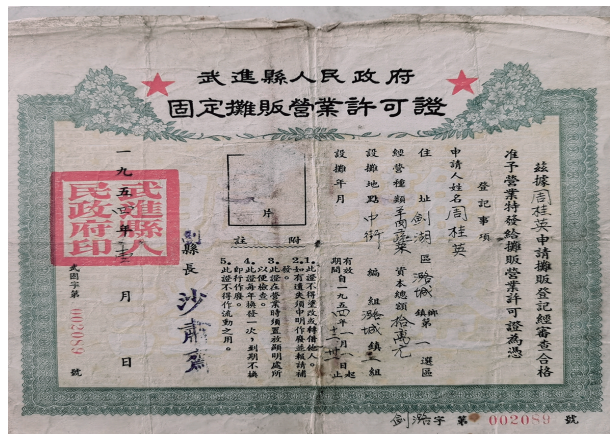 武進縣人民政府
固定攤販營業許可證
茲據周桂英申請攤販登記經審查合格
准予營業特發給攤販營業許可證為憑
登記事項
申請人姓名周桂英
住址劍湖區潞城鄉鎮第一選區
經營種類羊肉蔬菜 資本總額拾萬元
設攤地點中街 編組潞城鎮組
設攤年月
有效期間自一九五四年月日起
片
附註
1。此證不得塗改或轉借他人。
2。如有遺失須申明作廢並報請補發。
3。此證在營業時須置放顯明處所以便檢查。
4。此證每年換發一次,到期不換即行作廢。
5。此證不得作流動之用。
縣長 沙肅
一九五四年 月 日
武進縣人民政府印
武劍字第 002089 號
劍潞字第 002089 號